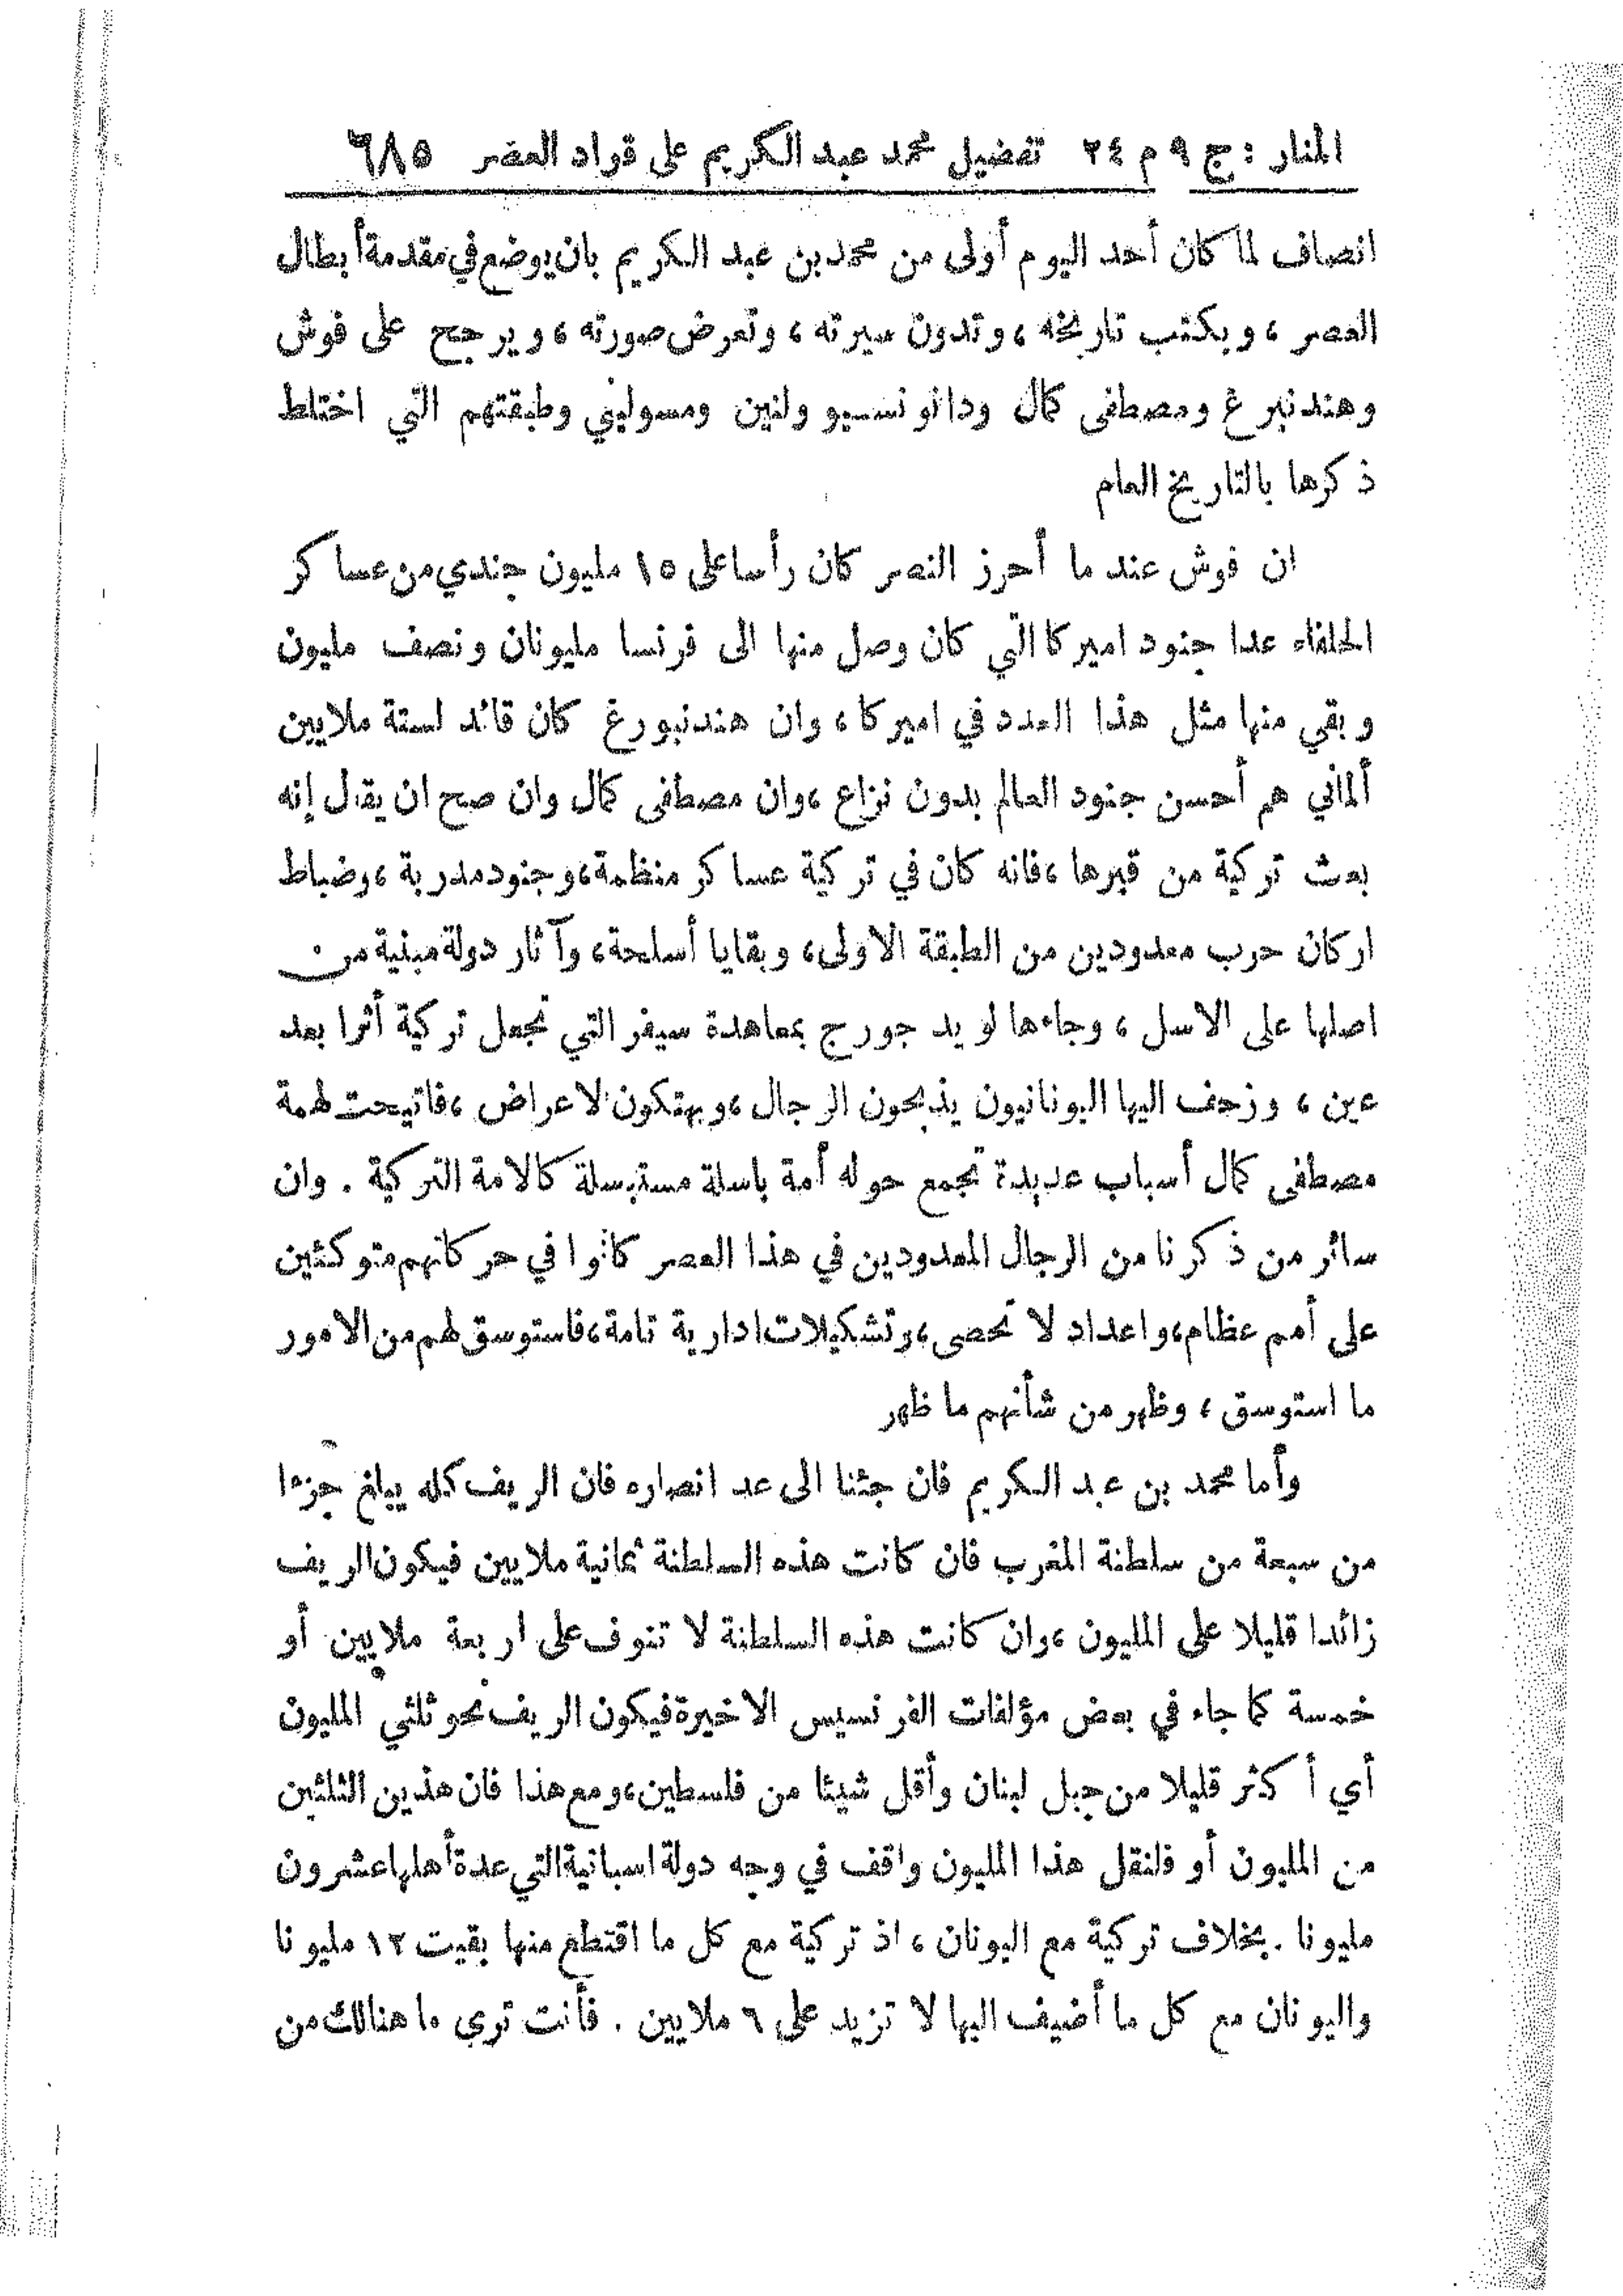 المنار : ج ٩ م ٢٤ تفضيل محمد عبد الكريم على قواد العصر ٦٨٥
انصاف لما كان أحد اليوم أولى من محمد بن عبد الكريم بان يوضع في مقدمة أبطال
العصر ، ويكتب تاريخه ، وتدون سيرته ، وتعرض صورته ، ويرجح على فوش
وهندنبرغ ومصطفى كمال ودانونسيو ولنين ومسوليني وطبقتهم التي اختلط
ذكرها بالتاريخ العام
ان فوش عند ما أحرز النصر كان رأسا على ١٥ مليون جندي من عساكر
الحلفاء عدا جنود اميركا التي كان وصل منها الى فرنسا مليونان ونصف مليون
وبقي منها مثل هذا العدد في اميركا ، وان هندنبورغ كان قائد لستة ملايين
ألماني هم أحسن جنود العالم بدون نزاع ، وان مصطفى كمال وان صح ان يقال إنه
بعث تركية من قبرها ، فانه كان في تركية عساكر منظمة ، وجنود مدربة ، وضباط
اركان حرب معدودين من الطبقة الاولى ، وبقايا أسلحة ، وآثار دولة مبنية من
اصلها على الاسل ، وجاءها لويد جورج بمعاهدة سيفر التي تجعل تركية أثرا بعد
عين ، وزحف اليها اليونانيون يذبحون الرجال ، ويهتكون لاعراض ، فاتيحت لهمة
مصطفى كمال أسباب عديدة تجمع حوله أمة باسلة مستبسلة كالامة التركية . وان
سائر من ذكرنا من الرجال المعدودين في هذا العصر كانوا في حركاتهم متوكئين
على أمم عظام ، واعداد لا تحصى ، وتشكيلات ادارية تامة ، فاستوسق لهم من الامور
ما استوسق ، وظهر من شأنهم ما ظهر
وأما محمد بن عبد الكريم فان جئنا الى عد انصاره فان الريف كله يبلغ جزءا
من سبعة من سلطنة المغرب فان كانت هذه السلطنة ثمانية ملايين فيكون الريف
زائدا قليلا على المليون ، وان كانت هذه السلطنة لا تنوف على اربعة ملايين أو
خمسة كما جاء في بعض مؤلفات الفرنسيس الاخيرة فيكون الريف نحو ثلثي المليون
أي أكثر قليلا من جبل لبنان وأقل شيئا من فلسطين ، ومع هذا فان هذين الثلثين
من المليون أو فلنقل هذا المليون واقف في وجه دولة اسبانية التي عدة أهلها عشرون
مليونا . بخلاف تركية مع اليونان ، اذ تركية مع كل ما اقتطع منها بقيت ١٢ مليونا
واليونان مع كل ما أضيف اليها لا تزيد على ٦ ملايين . فأنت ترى ما هنالك من